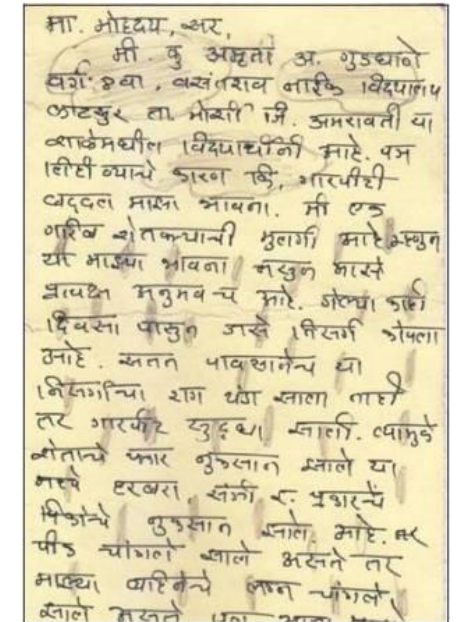 मा. मोहदय, सर,
मी. कु अमृता अ. गुडधाने
वर्ग ४था, वसंतराव नाईक विदयालय
काटसुर ता. मोर्शी जि. अमरावती या
शाळेमधील विदयार्थीनी माहे. पत्र
लिहीण्याचे कारण कि, गारपीटी
बद्दल माझा भावना. मी एक
गरिब शेतकऱ्याची मुलगी माहे म्हणुन
या माझ्या भावना नसुन माझे
प्रत्यक्ष अनुभवच माहे. गेल्या काही
दिवसा पासुन जसे निसर्ग कोपला
आहे. सतत पावसानेच या
निसर्गाचा राग थंडा झाला नाही
तर गारपीट सुद्धा झाली. त्यामुळे
शेताचे फार नुकसान झाले या
मध्ये हरबरा, संत्री इ. प्रकारचे
पिकांचे नुकसान झाले. माहे.
पीक चांगले झाले असते तर
माझ्या बहिनेचे लग्न चांगले
झाले असते पण